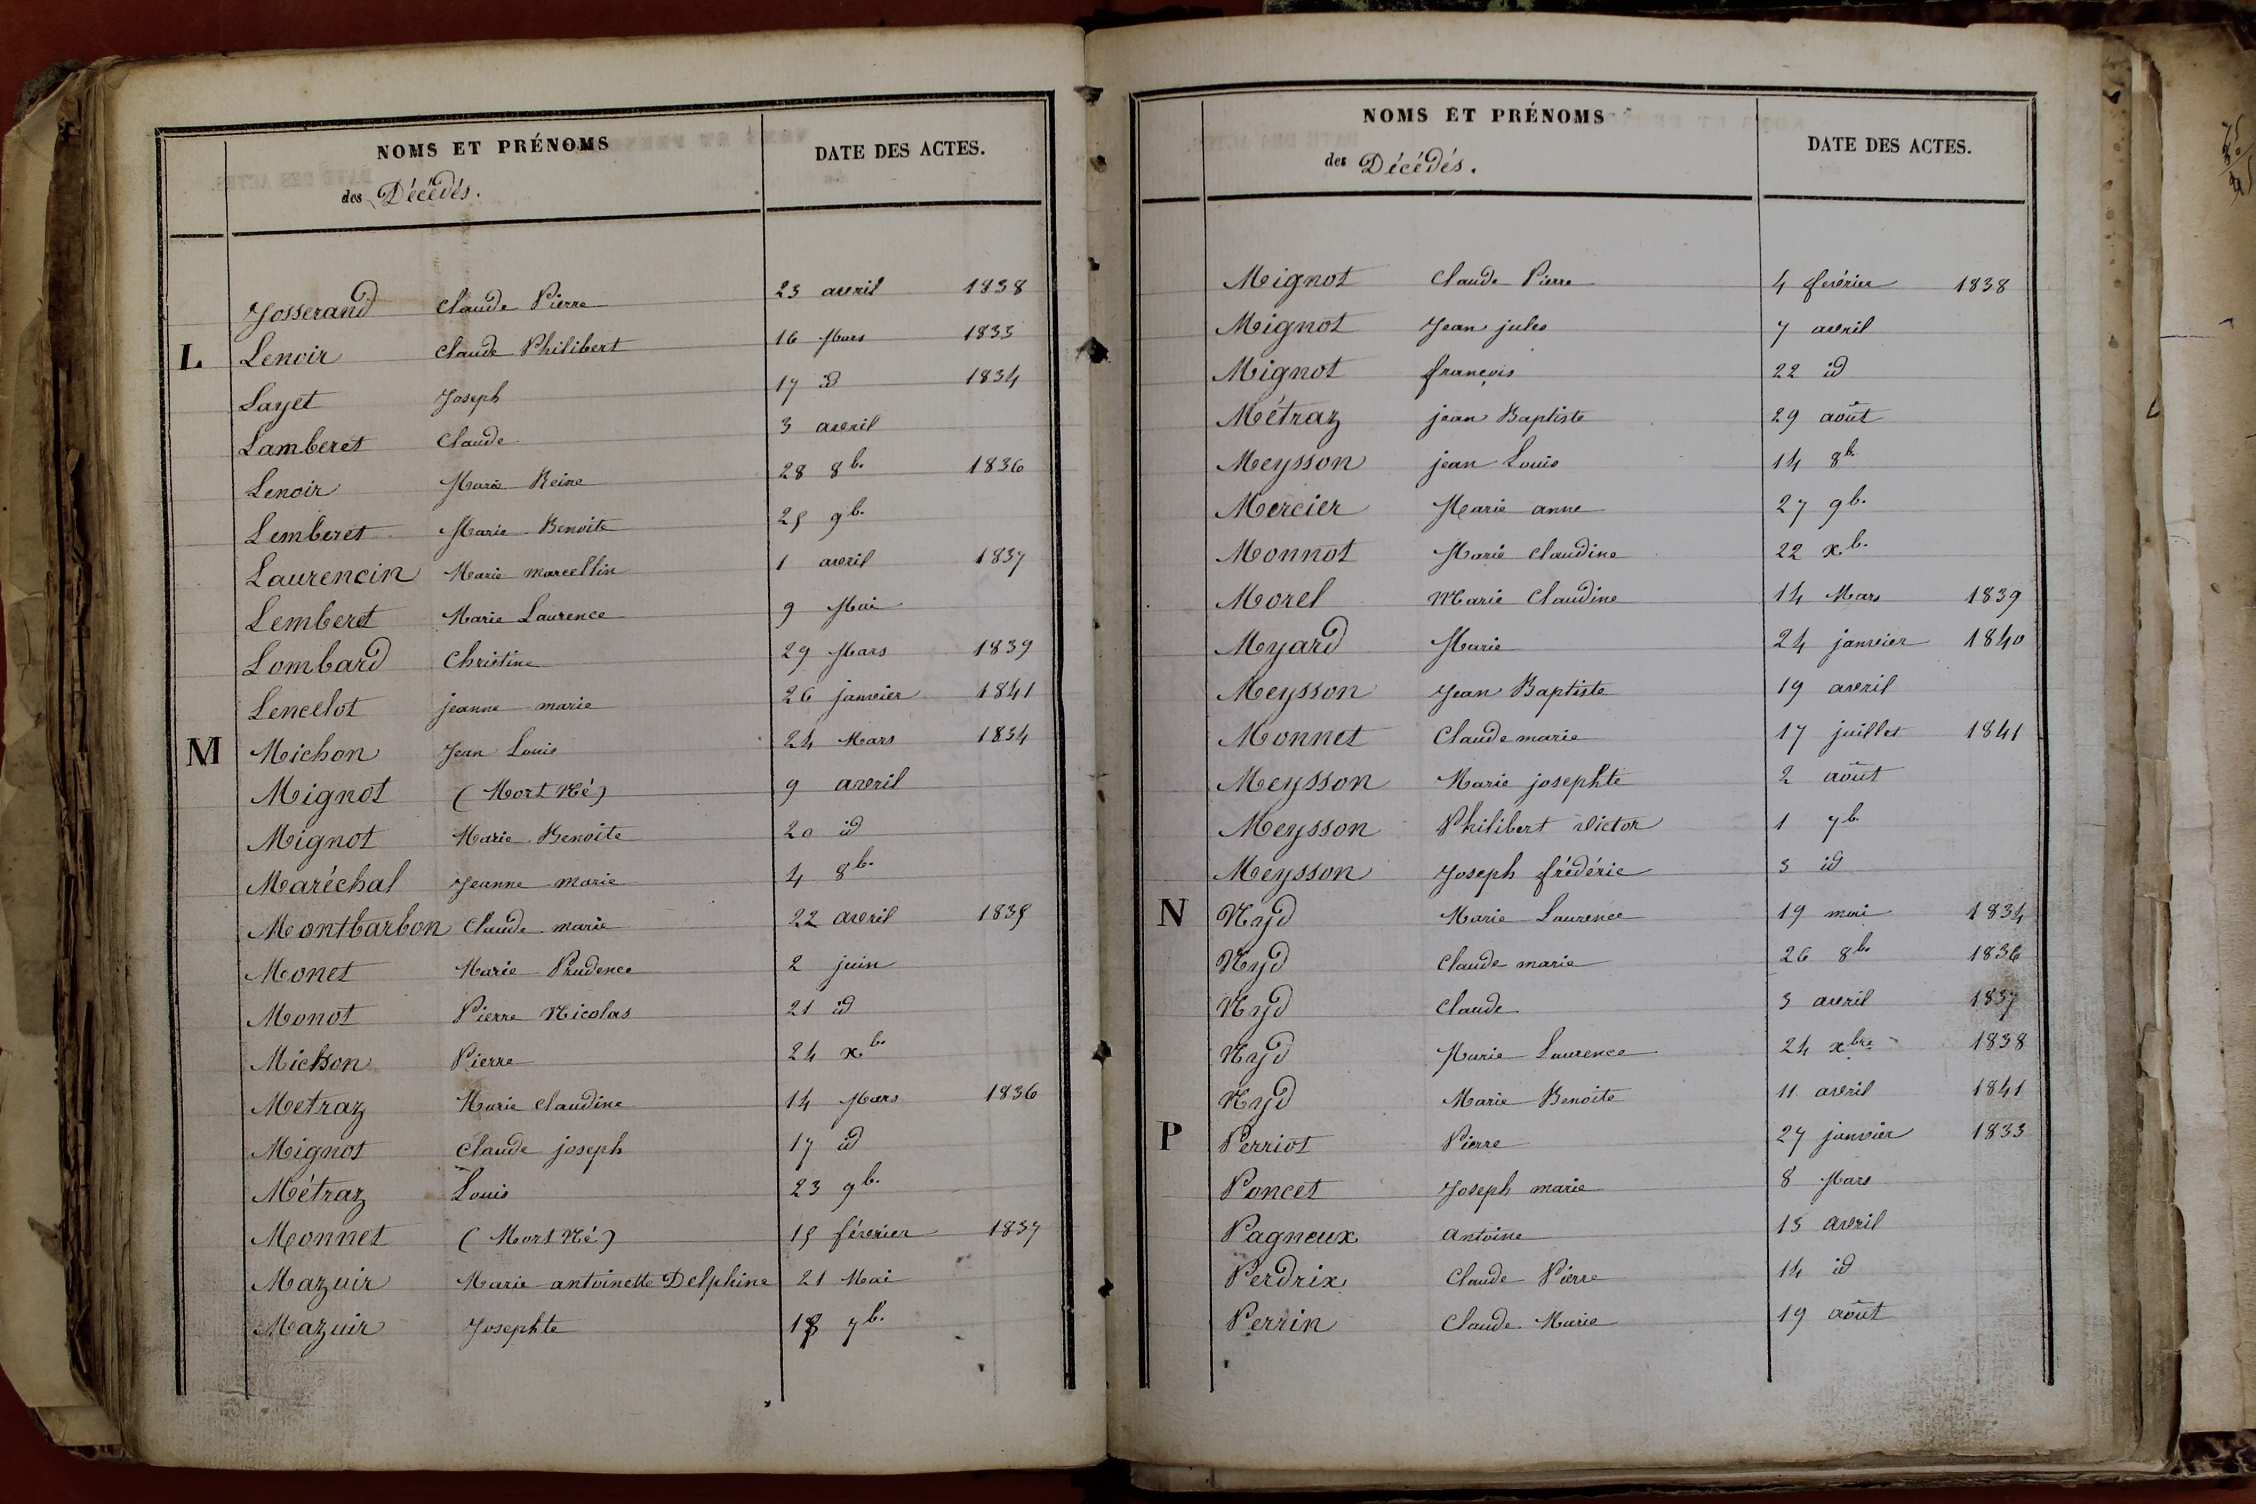 NOMS ET PRÉNOMS
des Décédés.
DATE DES ACTES.
Josserand Claude Pierre 23 avril 1838
L Lenoir Claude Philibert 16 Mars 1833
Layet Joseph 17 id 1834
Lamberet Claude 3 avril
Lenoir Marie Reine 28 8b. 1836
Lemberet Marie Benoite 25 9b.
Laurencin Marie marcellin 1 avril 1837
Lemberet Marie Laurence 9 Mai
Lombard Christine 29 Mars 1839
Lencelot jeanne marie 26 janvier 1841
M Michon Jean Louis 24 Mars 1834
Mignot (Mort Né) 9 avril
Mignot Marie Benoite 20 id
Maréchal Jeanne marie 4 8b.
Montbarbon Claude marie 22 avril 1835
Monet Marie Prudence 2 juin
Monot Pierre Nicolas 21 id
Michon Pierre 24 xb.
Metraz Marie Claudine 14 Mars 1836
Mignot Claude joseph 17 id
Métraz Louis 23 9b.
Monnet (Mort Né) 15 février 1837
Mazuir Marie antoinette Delphine 21 Mai
Mazuir Josephte 7b.
NOMS ET PRÉNOMS
des Décédés.
DATE DES ACTES.
Mignot Claude Pierre 4 février 1838
Mignot Jean jules 7 avril
Mignot françois 22 id
Métraz jean Baptiste 29 août
Meysson jean Louis 14 8b.
Mercier Marie anne 27 9b.
Monnot Marie Claudine 22 xb.
Morel Marie Claudine 14 Mars 1839
Myard Marie 24 janvier 1840
Meysson Jean Baptiste 19 avril
Monnet Claude marie 17 juillet 1841
Meysson Marie josephte 2 août
Meysson Philibert victor 1 7b.
Meysson Joseph frédéric 3 id
N Nyd Marie Laurence 19 mai 1834
Nyd Claude marie 26 8b. 1836
Nyd Claude 3 avril 1837
Nyd Marie Laurence 24 xbre 1838
Nyd Marie Benoite 11 avril 1841
P Perriot Pierre 27 janvier 1833
Poncet Joseph marie 8 Mars
Pagneux Antoine 13 avril
Perdrix Claude Pierre 14 id
Perrin Claude Marie 19 août